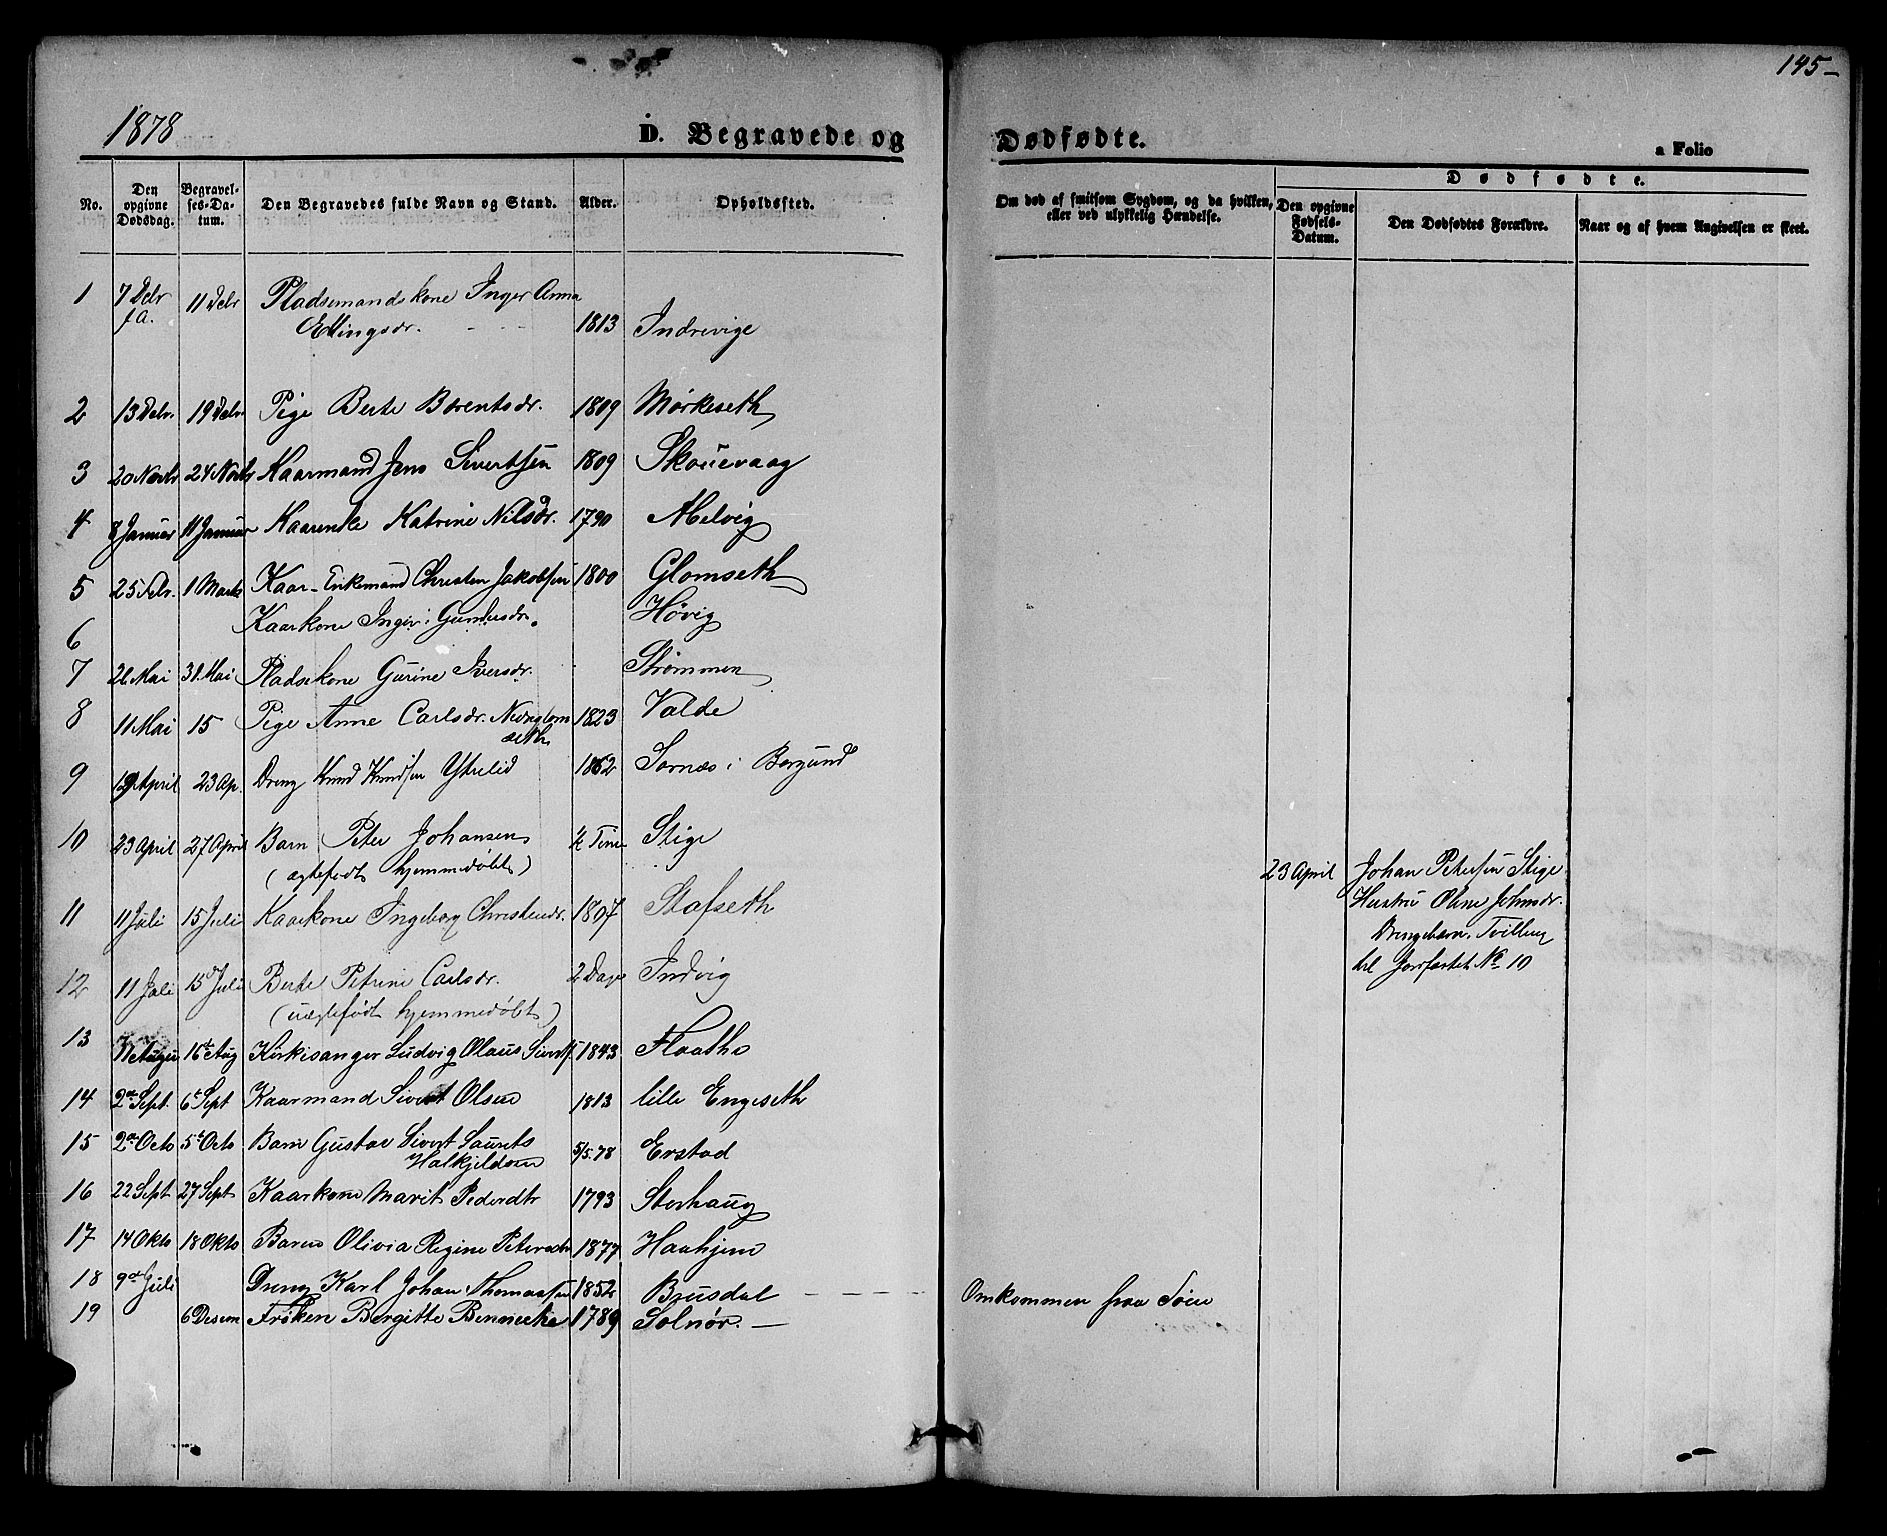 145-
1878
D. Begravede og
Dødfødte.
a Folio
No.
Den opgivne Dødsdag.
Begravelses-Datum.
Den Begravedes fulde Navn og Stand.
Alder.
Opholdssted.
Om død af smitsom Sygdom, og da hvilken, eller ved ulykkelig Hændelse.
Dødfødte.
Den opgivne Fødsels-Datum.
Den Dødfødtes Forældre.
Naar og af hvem Angivelsen er skeet.
1 7 Debr f.A. 11 Debr Pladsemandskone Inger Anna
Ellingsdr. 1813 Indrevige
2 13 Debr. 19 Debr. Pige Berte Bærentsdr. 1809 Mørkeseth
3 20 Novbr 24 Novbr Kaarmand Jens Sivertsen 1809 Skouevaag
4 8 Januar 11 Januar Kaarenke Katrine Nilsdr. 1790 Abelvig
5 25 1 Marts Kaar-Enkemand Christen Jakobsen 1800 Glomseth
6 Kaarkone Høvig
7 26 Mai 31. Mai Pladsekone Gurine Iversdr. Strømmen
8 11 Mai 15 Pige Anne Carlsdr. 1823 Valde
9 19 April 23 Ap. Dreng Knud Knudsen Ytrelid 1862 Sornæs i Borgund
10 23 April 27 April Barn Peter Johansen ½ Time Stige
(ægtefødt hjemmedøbt)
23 April Johan Petersen Stige
Hustru Oline Johnsdr.
Drengebarn. Tvilling
til No 10
11 11 Juli 15 Juli Kaarkone Ingeborg Christensdr. 1807 Stafseth
12 11 Juli 15 Juli Berte Petrine Carlsdr. 2 Dage Indvig
(uægtefødt hjemmedøbt)
13 11 August 16t Aug Kirkesanger Ludvig Olaus Sivertsf 1843 Flaathe
14 2den Sept. 6t Sept Kaarmand Sivert Olsen 1813 lille Engeseth
15 2den Octo 5t Octo Barn Gustav Sivert Laurits
Halkjeldsen 5/5.78 Erstad
16 22 Sept 27 Sept Kaarkone Marit Pedersdtr 1793 Storhaug
17 14 Okto 18 Okto Barn Olivia Regine Petersdtr 1877 Haahjem
18 9de Juli Dreng Karl Johan Thomassen 1852 Brusdal Omkommen paa Søen
19 6 Desem Frøken Bergitte Bennecke 1789 Solnør.